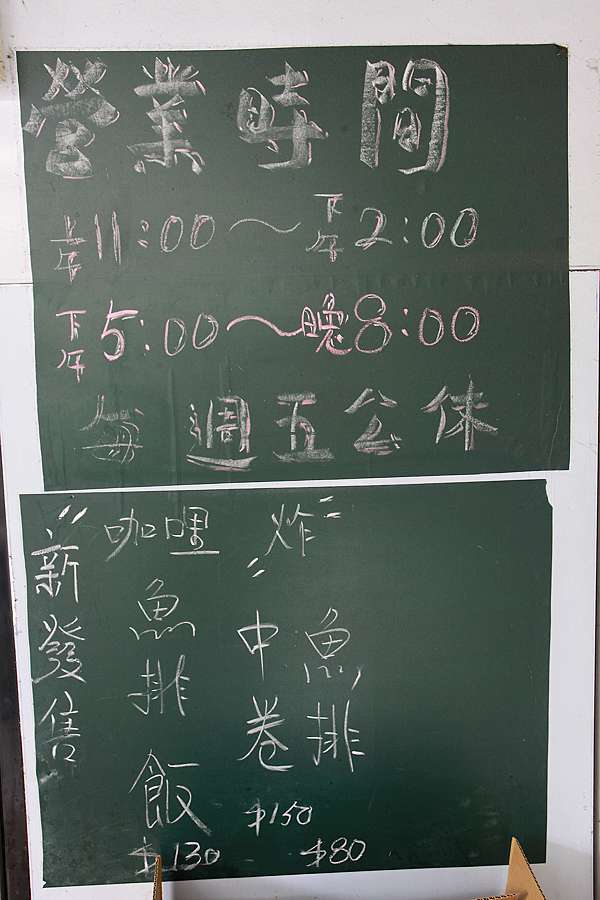 營業時間
上午11:00～下午2:00
下午5:00～晚8:00
每週五公休
新發售
咖哩魚排飯 $130
"炸"
中卷 $150
魚排 $80